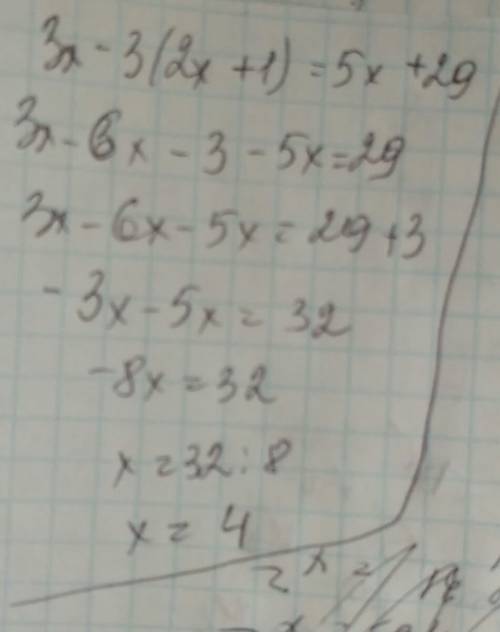 3x - 3(2x + 1) = 5x + 29
3x - 6x - 3 - 5x = 29
3x - 6x - 5x = 29 + 3
- 3x - 5x = 32
- 8x = 32
x = 32 : 8
x = 4